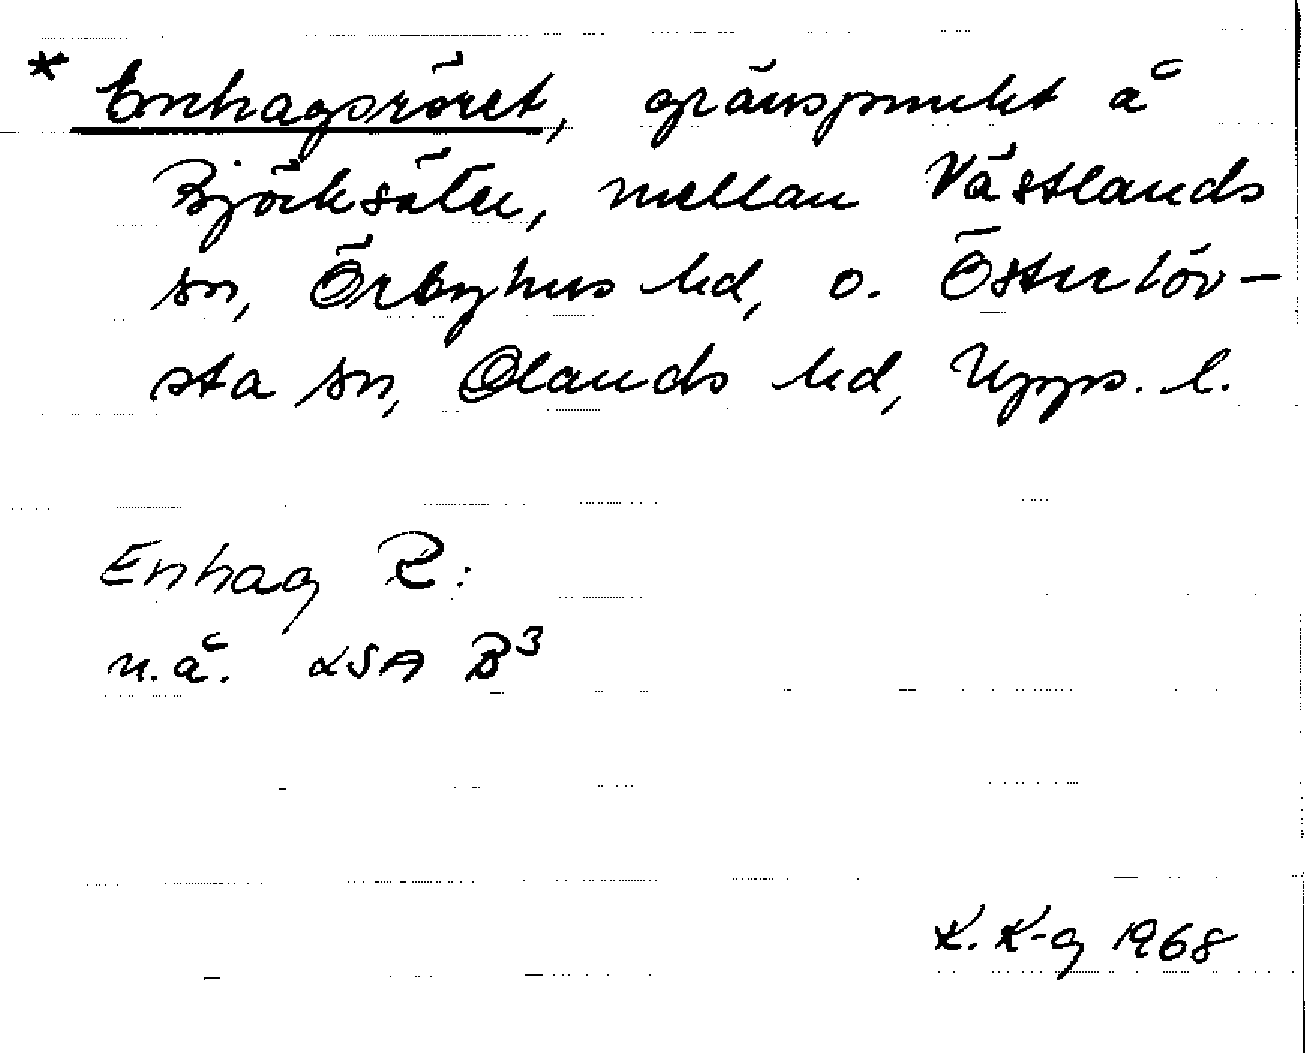 * Enhagsröret, gränspunkt å
Björksäter, mellan Västlands
sn, Örbyhus hd, o. Österlöv-
sta sn, Olands hd, Upps. l.
Enhag R:
n.å. LSA B3
K. K-g 1968